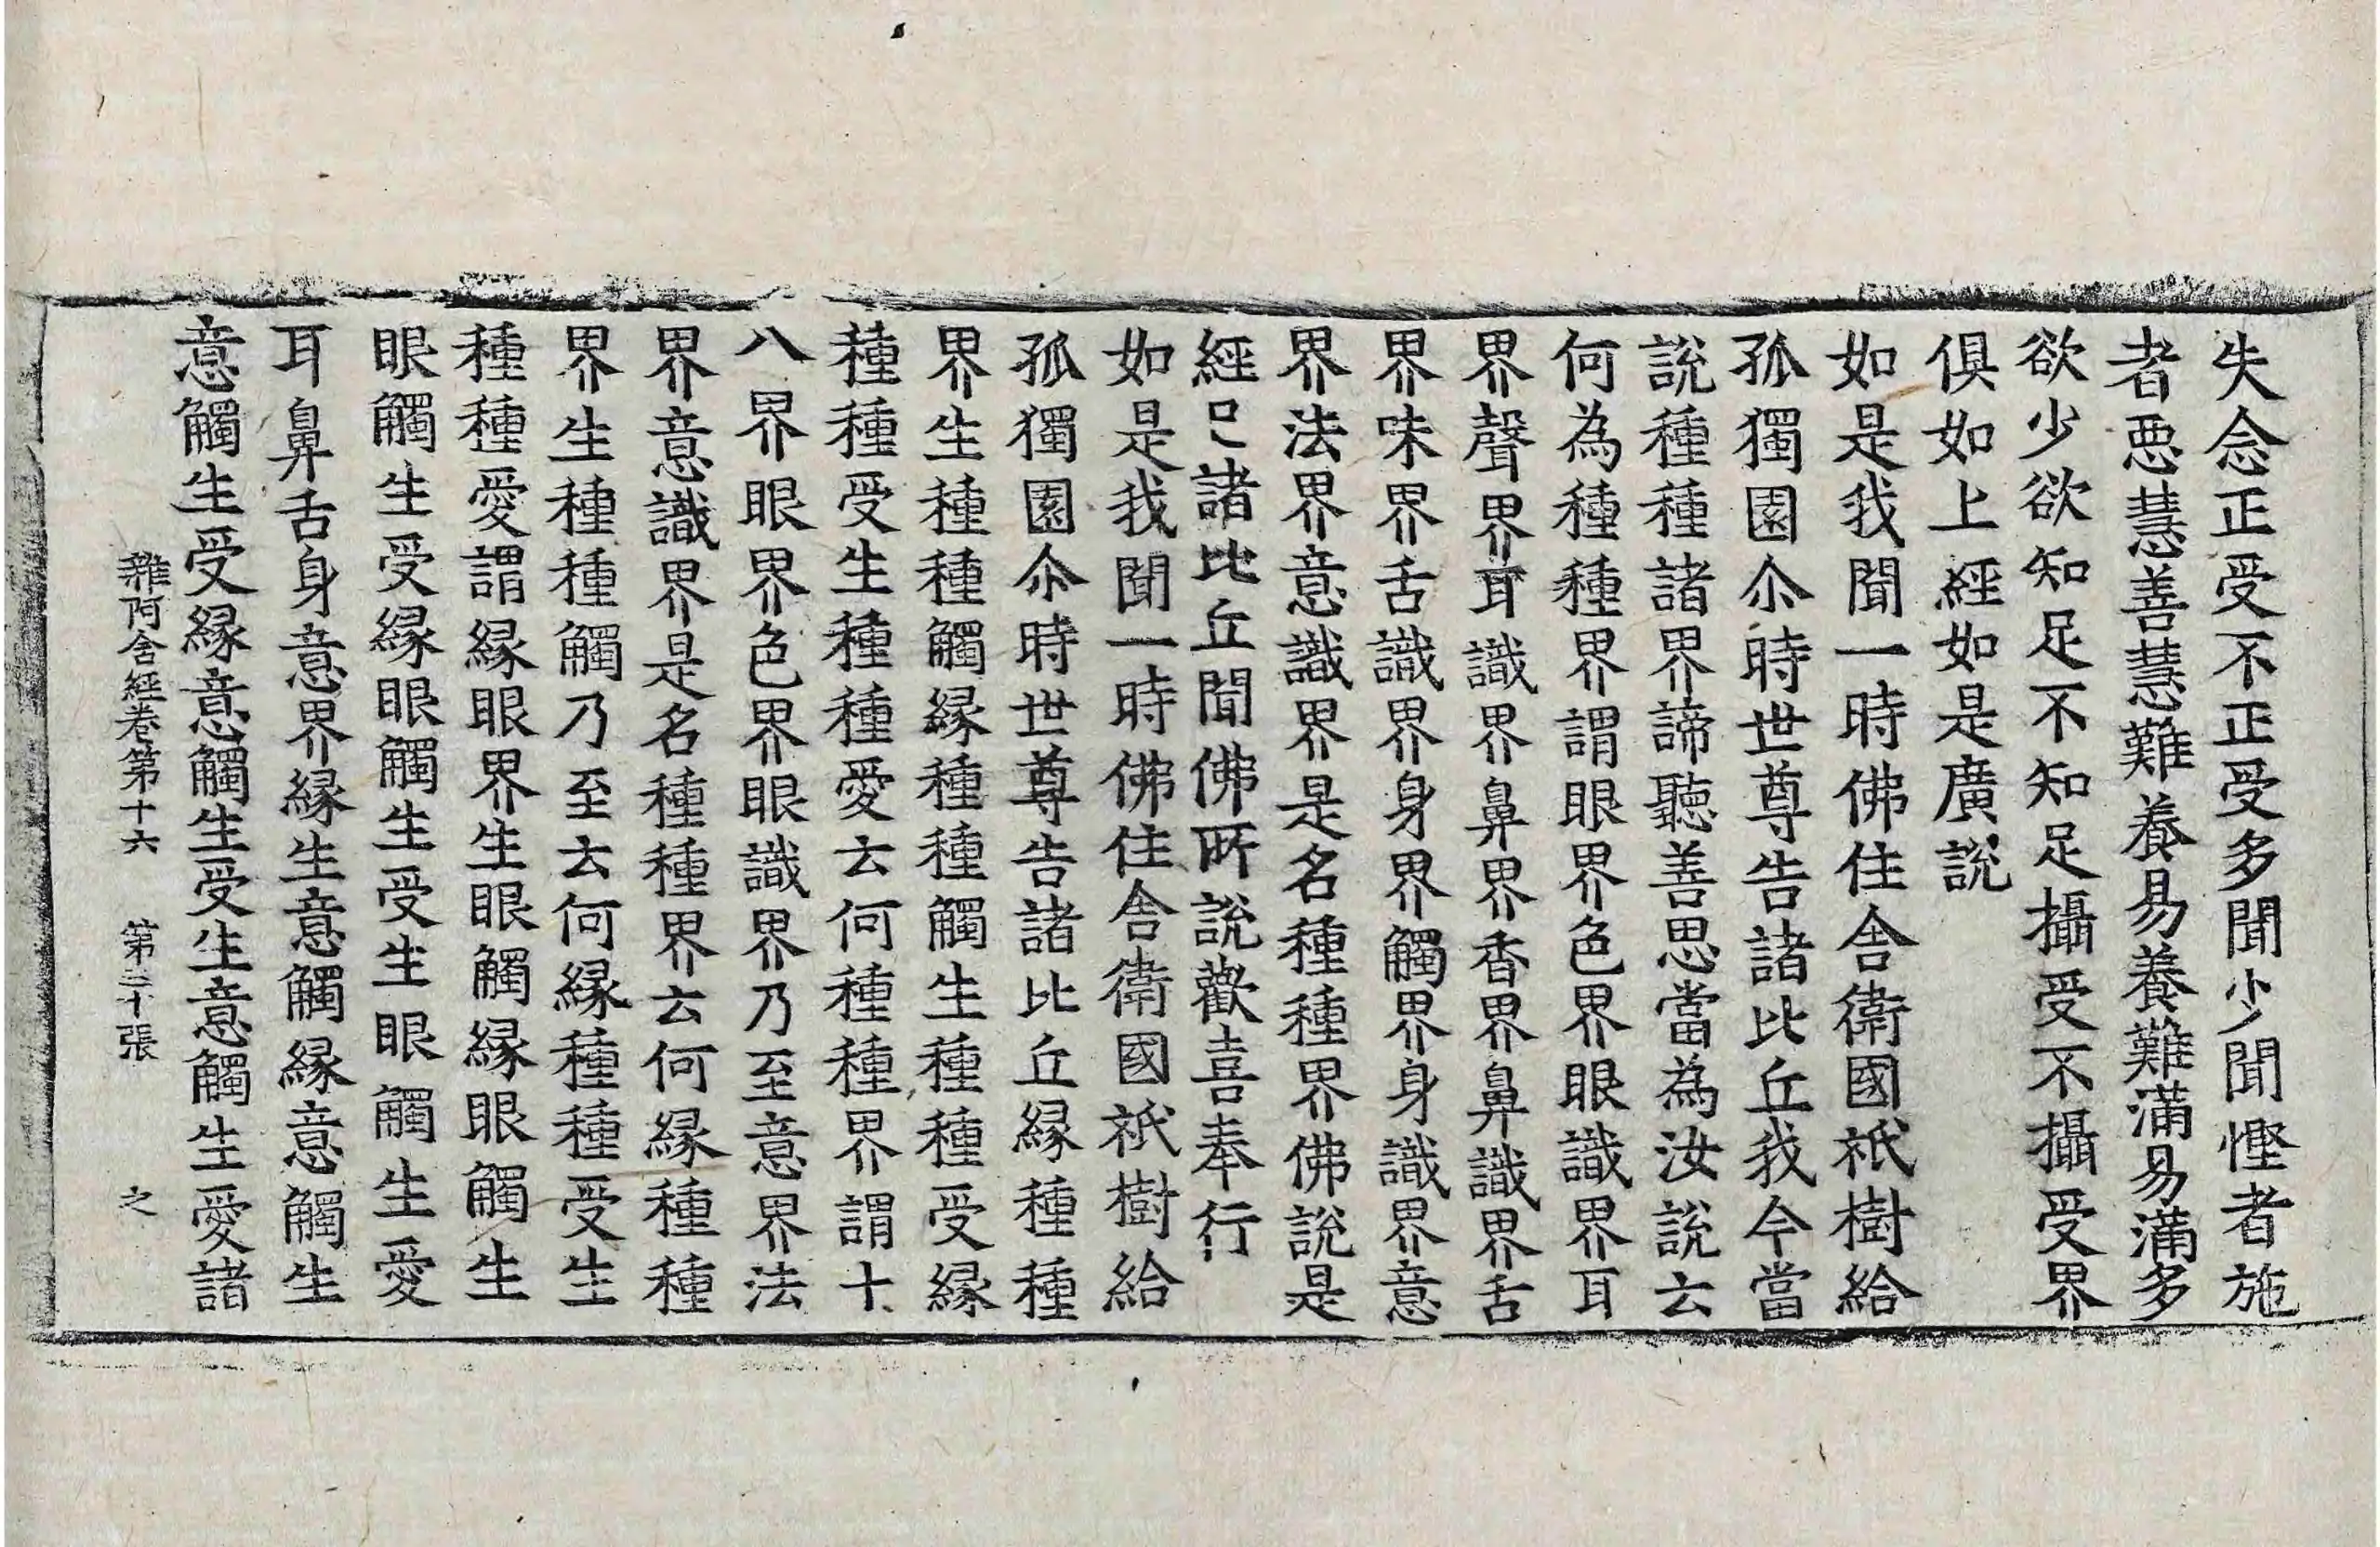 失念正受不正受多聞少聞慳者施
者惡慧善慧難養易養難滿易滿多
欲少欲知足不知足攝受不攝受界
俱如上經如是廣說
如是我聞一時佛住舍衛國祇樹給
孤獨園尒時世尊告諸比丘我今當
說種種諸界諦聽善思當為汝說云
何為種種界謂眼界色界眼識界耳
界聲界耳識界鼻界香界鼻識界舌
界味界舌識界身界觸界身識界意
界法界意識界是名種種界佛說是
經已諸比丘聞佛所說歡喜奉行
如是我聞一時佛住舍衛國祇樹給
孤獨園尒時世尊告諸比丘緣種種
界生種種觸緣種種觸生種種受緣
種種受生種種愛云何種種界謂十
八界眼界色界眼識界乃至意界法
界意識界是名種種界云何緣種種
界生種種觸乃至云何緣種種受生
種種愛謂緣眼界生眼觸緣眼觸生
眼觸生受緣眼觸生受生眼觸生愛
耳鼻舌身意界緣生意觸緣意觸生
意觸生受緣意觸生受生意觸生愛諸
雜阿含經卷第十六 第三十張 之